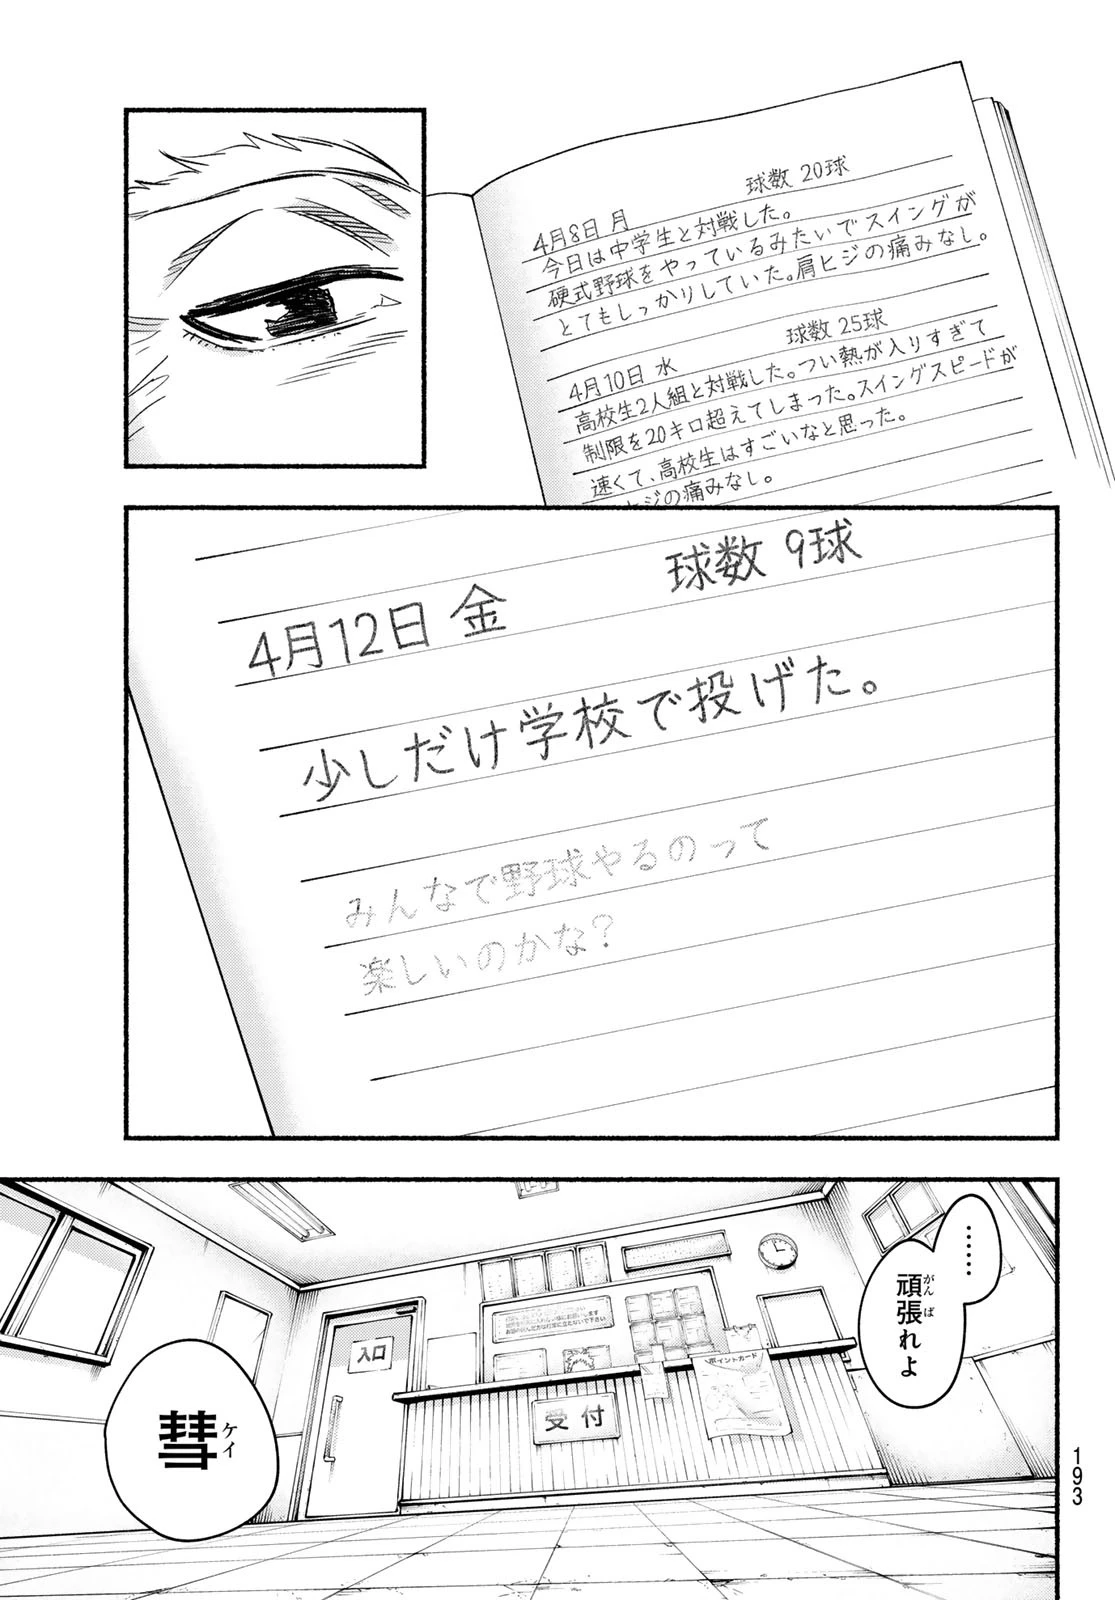 球数 20球
4月8日 月
今日は中学生と対戦した。
硬式野球をやっているみたいでスイングが
とてもしっかりしていた。肩ヒジの痛みなし。
球数 25球
4月10日 水
高校生2人組と対戦した。つい熱が入りすぎて
制限を20キロ超えてしまった。スイングスピードが
速くて、高校生はすごいなと思った。
ヒジの痛みなし。
球数 9球
4月12日 金
少しだけ学校で投げた。
みんなで野球やるのって
楽しいのかな?
……
頑張れよ
がんば
入口
受付
ポイントカード
彗
ケイ
193